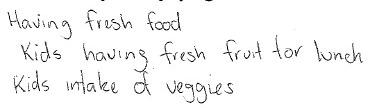 Having fresh food
Kids having fresh fruit for lunch
Kids intake of veggies